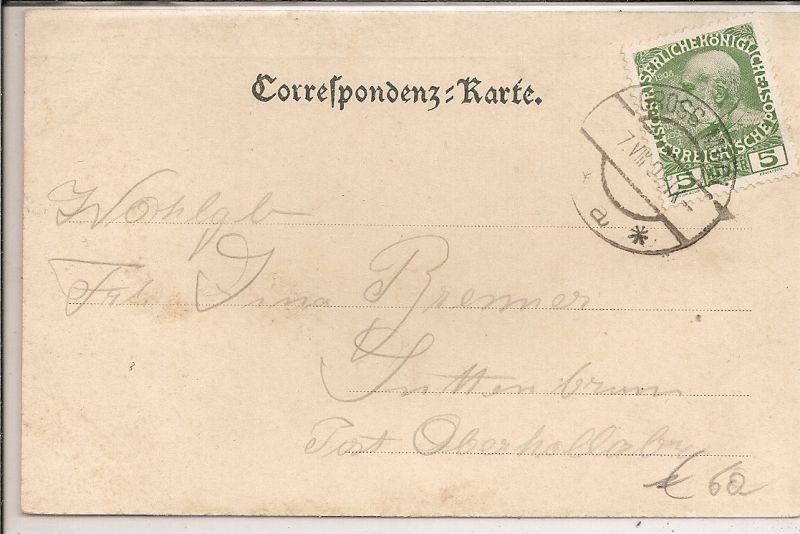 Correspondenz-Karte.
1908
KAISERLICHEKÖNIGLICHE
ÖSTERREICHISCHE POST
5 5
GROSS
7. VIII
a *
Wohlgb
Frl. Dina Brenner
Suttenbrunn
Post Oberhollabrn
€ 60